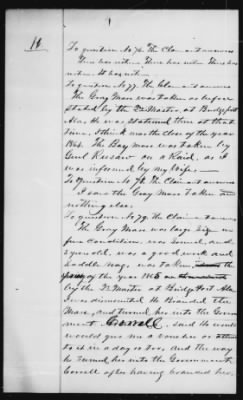 16
To question No 76. The Claimant answers
There has not. There has not. There has
not. It has not.
To question No 77. The Claimant answers
The Gray Mare was taken as before
stated by the Qr Master, at Bridgeport
Ala. He was stationed there at that
time. I think was the close of the year
1864. The Bay mare was taken by
Genl on a Raid, as I
was informed by my Wife.
To Question No 78. The Claimant answers
I saw the Gray Mare taken
nothing else.
To question No 79. The Claimant answers
The Gray Mare was large size in
fine Condition, was sound, and
years old, was a good work and
saddle nag, was taken the
of the year 1865
by the Qr Master at Bridgeport Ala
I was dismounted He Branded the
Mare, and turned her into the Govern
ment Correll, said He would
would give me a voucher or attend
to it in a day or two. and the way
he turned her into the Government
Correll after having branded her.